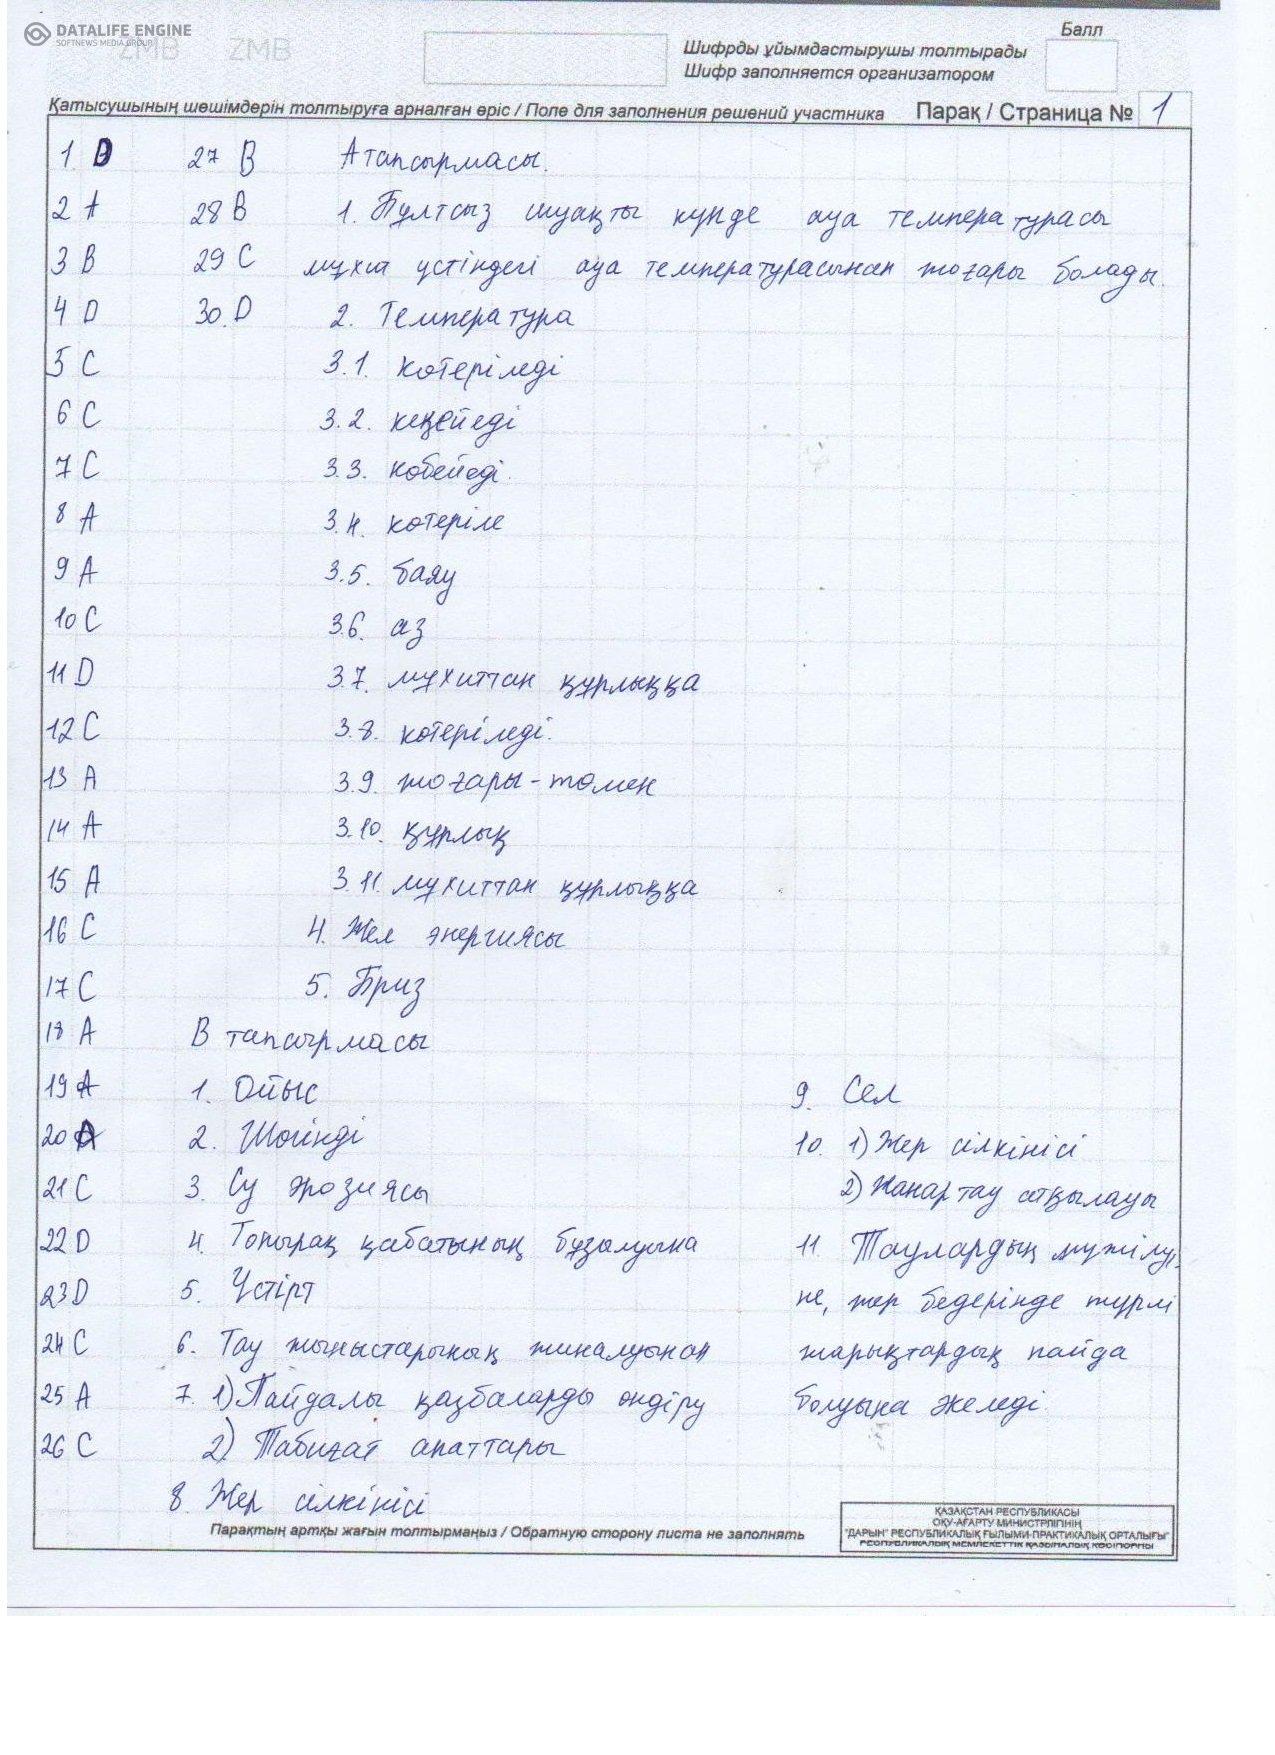 DATALIFE ENGINE
SOFTNEWS MEDIA GROUP
ZMB ZMB
Балл
Шифрды ұйымдастырушы толтырады
Шифр заполняется организатором
Қатысушының шешімдерін толтыруға арналған өріс / Поле для заполнения решений участника Парақ / Страница № 1
1. D
2 A
3 B
4 D
5 C
6 C
7 C
8 A
9 A
10 C
11 D
12 C
13 A
14 A
15 A
16 C
17 C
18 A
19 A
20 A
21 C
22 D
23 D
24 C
25 A
26 C
27 B
28 B
29 C
30. D
А тапсырмасы.
1. Бұлтсыз шуақты күнде ауа температурасы
мұхит үстіндегі ауа температурасынан жоғары болады.
2. Температура
3.1. көтеріледі
3.2. кеңейеді
3.3. көбейеді.
3.4. көтеріле
3.5. баяу
3.6. аз
3.7. мұхиттан құрлыққа
3.8. көтеріледі.
3.9. жоғары-төмен
3.10. құрлық
3.11. мұхиттан құрлыққа
4. Жел энергиясы
5. Бриз
В тапсырмасы
1. Ойыс
2. Шөгінді
3. Су эрозиясы
4. Топырақ қабатының бұзылуына
5. Үстірт
6. Тау жыныстарының жиналуынан
7. 1) Пайдалы қазбаларды өндіру
2) Табиғат апаттары
8. Жер сілкінісі
9. Сел
10. 1) Жер сілкінісі
2) Жанартау атқылауы
11. Таулардың мүжілуі
не, жер бедерінде түрлі
жарықтардың пайда
болуына әкеледі.
Парақтың артқы жағын толтырмаңыз / Обратную сторону листа не заполнять
ҚАЗАҚСТАН РЕСПУБЛИКАСЫ
ОҚУ-АҒАРТУ МИНИСТРЛІГІНІҢ
"ДАРЫН" РЕСПУБЛИКАЛЫҚ ҒЫЛЫМИ-ПРАКТИКАЛЫҚ ОРТАЛЫҒЫ"
РЕСПУБЛИКАЛЫҚ МЕМЛЕКЕТТІК ҚАЗЫНАЛЫҚ КӘСІПОРНЫ